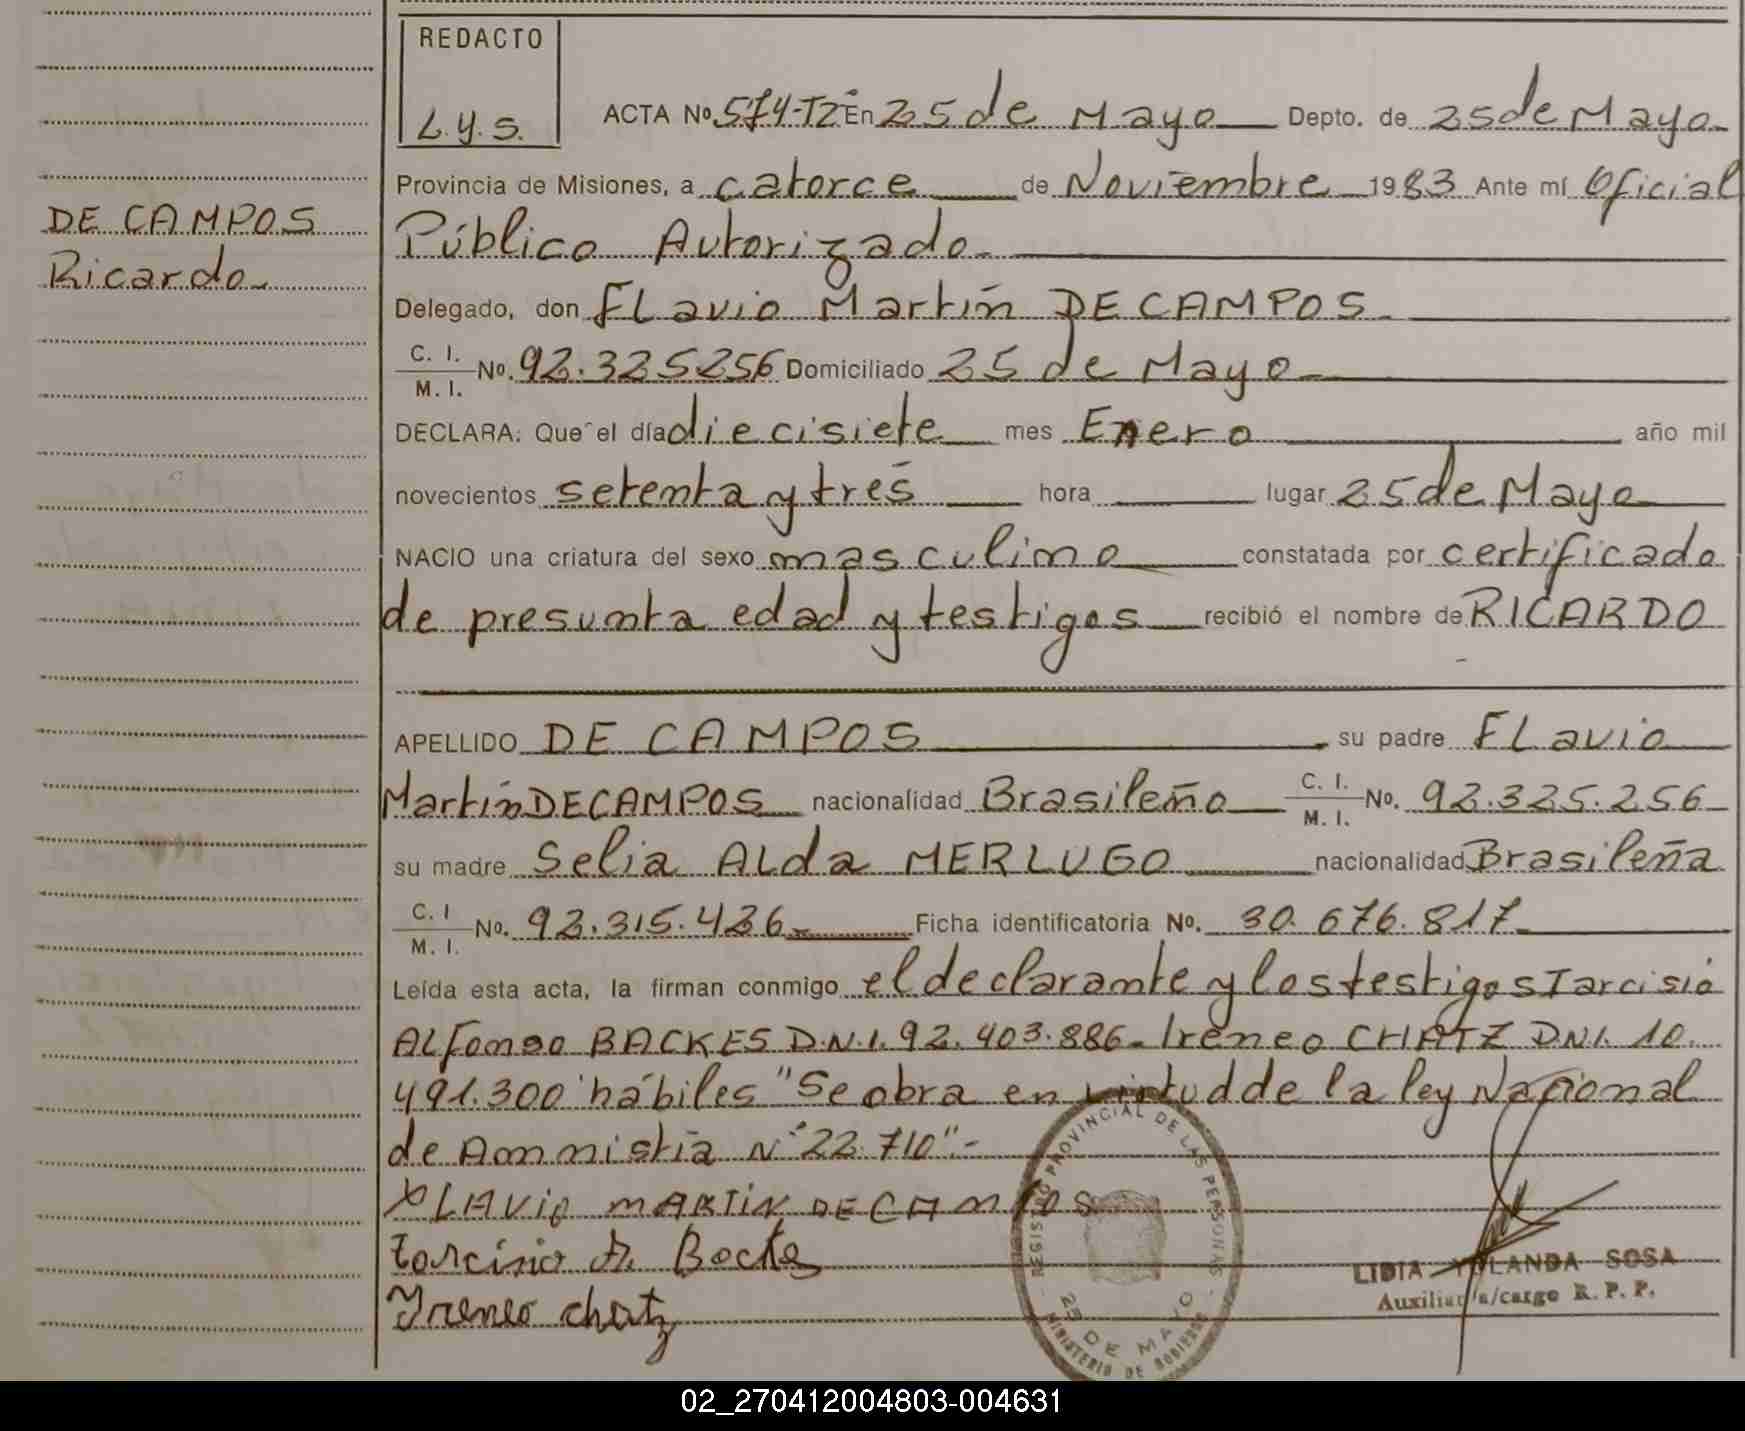 REDACTO
L.Y.S.
ACTA No. 574-T2 En 25 de Mayo Depto. de 25 de Mayo
Provincia de Misiones, a catorce de Noviembre 1983 Ante mí Oficial
Público Autorizado
DE CAMPOS
Ricardo
Delegado, don FLavio Martín DE CAMPOS
C. I.
M. I. No. 92.325256 Domiciliado 25 de Mayo
DECLARA: Que el día diecisiete mes Enero año mil
novecientos setenta y tres hora lugar 25 de Mayo
NACIO una criatura del sexo masculino constatada por certificado
de presunta edad y testigos recibió el nombre de RICARDO
APELLIDO DE CAMPOS su padre FLavio
Martín DE CAMPOS nacionalidad Brasileño C. I. M. I. No. 92.325.256
su madre Selia ALda MERLUGO nacionalidad Brasileña
C. I M. I. No. 92.315.426 Ficha identificatoria No. 30.676.817
Leída esta acta, la firman conmigo el declarante y los testigos Tarcisio
ALfonso BACKES D.N.I. 92.403.886- Ireneo CHATZ DNI. 10.
491.300 hábiles "Se obra en virtud de la ley Nacional
de Amnistía N° 22.710"-
FLAVIO MARTIN DE CAMPOS
Tarcisio A. Backes
Ireneo Chatz
REGISTRO PROVINCIAL DE LAS PERSONAS
25 DE MAYO
MINISTERIO DE GOBIERNO
LIDIA YOLANDA SOSA
Auxiliar a/cargo R. P. P.
02_270412004803-004631